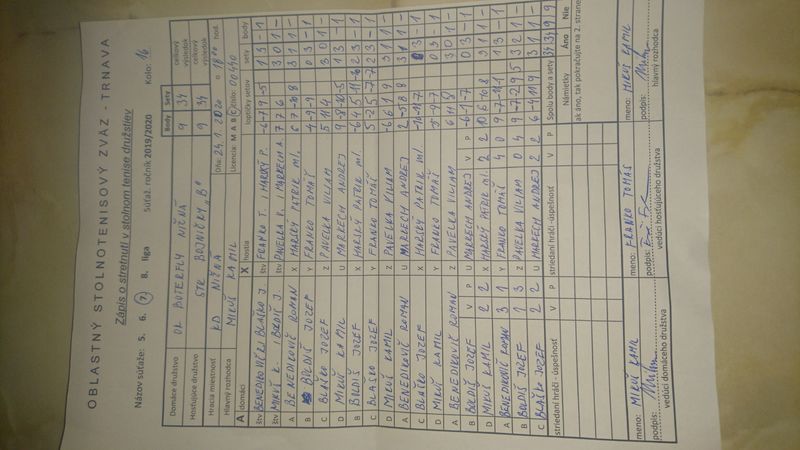 OBLASTNÝ STOLNOTENISOVÝ ZVÄZ - TRNAVA
Zápis o stretnutí v stolnom tenise družstiev
Názov súťaže: 5. 6. 7. 8. liga Súťaž. ročník 2019/2020 Kolo: 16
Body Sety
Domáce družstvo OK BUTERFLY NIŽNÁ celkový výsledok 9 34
Hosťujúce družstvo STK BOJNIČKY "B" celkový výsledok 9 34
Hracia miestnosť KD NIŽNÁ Dňa: 24.1.2020 o 18 00 hod.
Hlavný rozhodca MIKUŠ KAMIL Licencia: M A B C číslo: 00440
A domáci X hostia loptičky setov sety body
štv BENEDIKOVIČ R. / BLAŠKO J. štv FRANKO T. / HARSKÝ P. -6 -7 9 -5 1 3 - 1
štv MIKUŠ K. / BOLDIŠ J. štv PAVELKA V. / MARKECH A. 7 7 6 3 0 1 -
A BENEDIKOVIČ ROMAN X HARSKÝ PATRIK ml. 6 7 -10 8 3 1 1 -
B BOLDIŠ JOZEF Y FRANKO TOMÁŠ -4 -9 -9 0 3 - 1
C BLAŠKO JOZEF Z PAVELKA VILIAM 5 11 4 3 0 1 -
D MIKUŠ KAMIL U MARKECH ANDREJ 9 -8 -10 -5 1 3 - 1
B BOLDIŠ JOZEF X HARSKÝ PATRIK ml. -6 4 5 -11 2 3 - 1
C BLAŠKO JOZEF Y FRANKO TOMÁŠ 5 -2 5 -7 -7 2 3 - 1
D MIKUŠ KAMIL Z PAVELKA VILIAM -6 6 1 9 3 1 1 -
A BENEDIKOVIČ ROMAN U MARKECH ANDREJ 3 1 1 -
C BLAŠKO JOZEF X HARSKÝ PATRIK ml. -10 -11 -7 0 3 - 1
D MIKUŠ KAMIL Y FRANKO TOMÁŠ 0 3 - 1
A BENEDIKOVIČ ROMAN Z PAVELKA VILIAM 6 11 8 3 0 1 -
B BOLDIŠ JOZEF V P U MARKECH ANDREJ V P -6 -1 -7 0 3 - 1
D MIKUŠ KAMIL 2 2 X HARSKÝ PATRIK ml. 2 2 10 6 -10 8 3 1 1 -
A BENEDIKOVIČ ROMAN 3 1 Y FRANKO TOMÁŠ 4 0 9 -7 -11 -11 1 3 - 1
B BOLDIŠ JOZEF 1 3 Z PAVELKA VILIAM 0 4 9 -7 -2 9 5 3 2 1 -
C BLAŠKO JOZEF 2 2 U MARKECH ANDREJ 2 2 6 -4 11 9 3 1 1 -
striedaní hráči - úspešnosť V P striedaní hráči - úspešnosť V P Spolu body a sety 34 34 9 9
Námietky Áno Nie
ak áno, tak pokračujte na 2. strane
meno: MIKUŠ KAMIL meno: FRANKO TOMÁŠ meno: MIKUŠ KAMIL
podpis: podpis: podpis:
vedúci domáceho družstva vedúci hosťujúceho družstva hlavný rozhodca